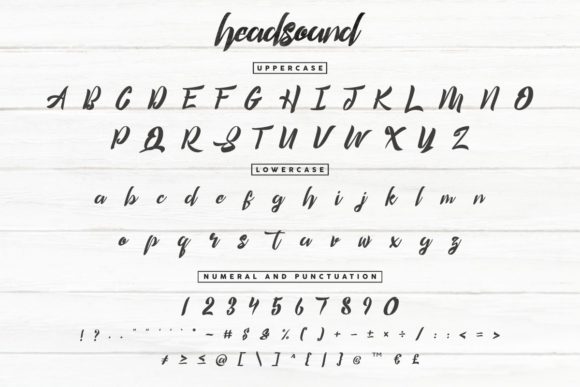 headsound
UPPERCASE
A B C D E F G H I J K L M N O
P Q R S T U V W X Y Z
LOWERCASE
a b c d e f g h i j k l m n
o p q r s t u v w x y z
NUMERAL AND PUNCTUATION
1 2 3 4 5 6 7 8 9 0
! ? . , " " ' ' * ~ # $ & % ( ) + - ± × ÷ / : : < = >
≠ ≥ ≤ @ [ \ ] ^ { | } © ™ € £